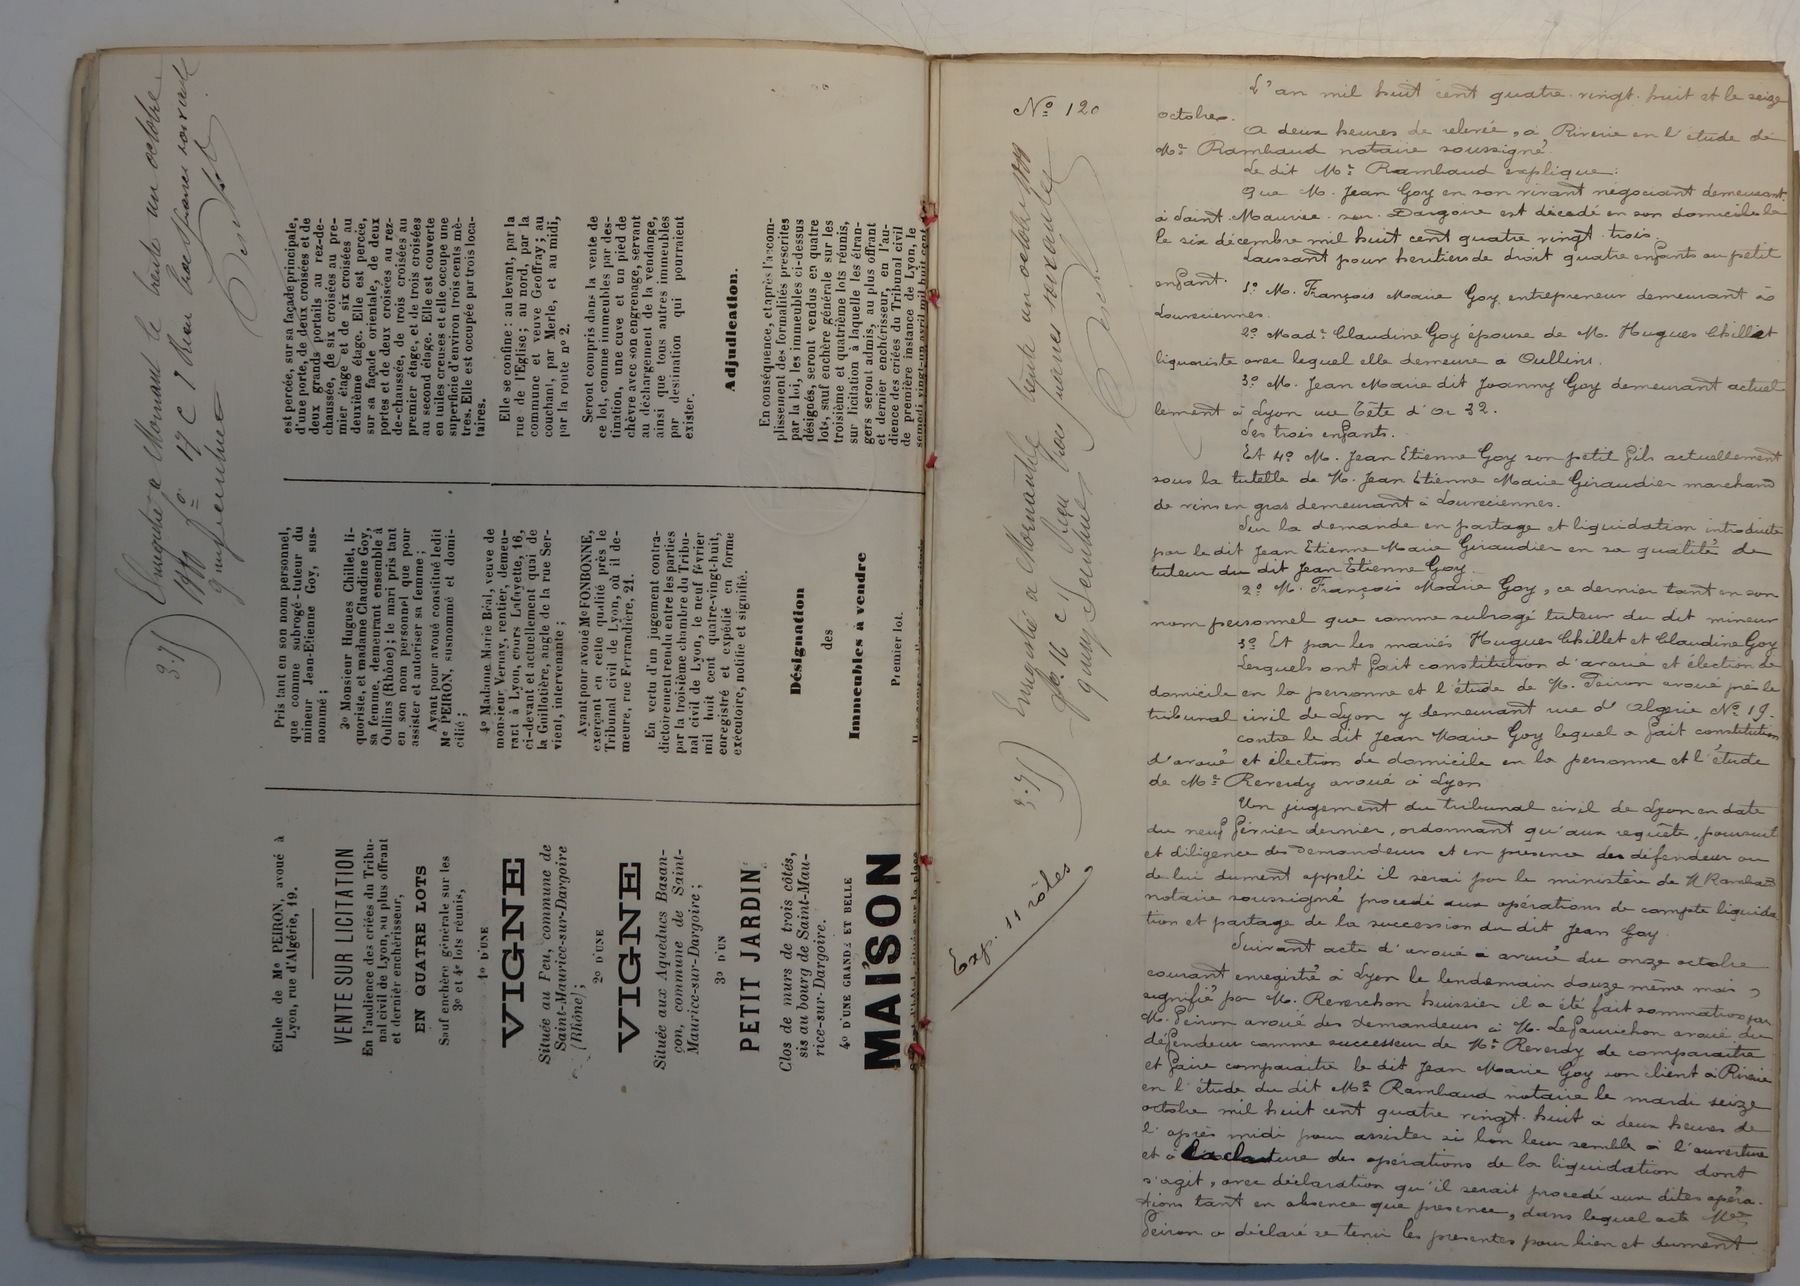 Etude de Me PEIRON, avoué à
Lyon, rue d'Algérie, 19.
VENTE SUR LICITATION
En l'audience des criées du Tribu-
nal civil de Lyon, au plus offrant
et dernier enchérisseur,
EN QUATRE LOTS
Sauf enchère générale sur les
3e et 4e lots réunis,
1o D'UNE
VIGNE
Située au Feu, commune de
Saint-Maurice-sur-Dargoire
(Rhône);
2o D'UNE
VIGNE
Située aux Aqueducs Basan-
çon, commune de Saint-
Maurice-sur-Dargoire;
3o D'UN
PETIT JARDIN
Clos de murs de trois côtés,
sis au bourg de Saint-Mau-
rice-sur-Dargoire.
4o D'UNE GRANDE ET BELLE
MAISON
Pris tant en son nom personnel,
que comme subrogé-tuteur du
mineur Jean-Etienne Goy, sus-
nommé;
3o Monsieur Hugues Chillet, li-
quoriste, et madame Claudine Goy,
sa femme, demeurant ensemble à
Oullins (Rhône); le mari pris tant
en son nom personnel que pour
assister et autoriser sa femme;
Ayant pour avoué constitué ledit
Me PEIRON, susnommé et domi-
cilié;
4o Madame Marie Béal, veuve de
monsieur Vernay, rentier, demeu-
rant à Lyon, cours Lafayette, 16,
ci-devant et actuellement quai de
la Guillotière, angle de la rue Ser-
vient, intervenante;
Ayant pour avoué Me FONBONNE,
exerçant en cette qualité près le
Tribunal civil de Lyon, où il de-
meure, rue Ferrandière, 21.
En vertu d'un jugement contra-
dictoirement rendu entre les parties
par la troisième chambre du Tribu-
nal civil de Lyon, le neuf février
mil huit cent quatre-vingt-huit,
enregistré et expédié en forme
exécutoire, notifié et signifié.
Désignation
des
Immeubles à vendre
Premier lot.
est percée, sur sa façade principale,
d'une porte, de deux croisées et de
deux grands portails au rez-de-
chaussée, de six croisées au pre-
mier étage et de six croisées au
deuxième étage. Elle est percée,
sur sa façade orientale, de deux
portes et de deux croisées au rez-
de-chaussée, de trois croisées au
premier étage, et de trois croisées
au second étage. Elle est couverte
en tuiles creuses et elle occupe une
superficie d'environ trois cents mè-
tres. Elle est occupée par trois loca-
taires.
Elle se confine: au levant, par la
rue de l'Eglise; au nord, par la
commune et veuve Geoffray; au
couchant, par Merle, et au midi,
par la route no 2.
Seront compris dans la vente de
ce lot, comme immeubles par des-
tination, une cuve et un pied de
chèvre avec son engrenage, servant
au déchargement de la vendange,
ainsi que tous autres immeubles
par destination qui pourraient
exister.
Adjudication.
En conséquence, et après l'accom-
plissement des formalités prescrites
par la loi, les immeubles ci-dessus
désignés, seront vendus en quatre
lots, sauf enchère générale sur les
troisième et quatrième lots réunis,
sur licitation à laquelle les étran-
gers seront admis, au plus offrant
et dernier enchérisseur, en l'au-
dience des criées du Tribunal civil
de première instance de Lyon, le
samedi vingt-un avril mil huit cent
3.75
Enregistré à Mornant le trente un octobre
1888 fo 17 C
No 120
Enregistré à Mornant le trente un octobre 1888
fo 16 c
3.75
Exp. 11 rôles
L'an mil huit cent quatre vingt huit et le seize
octobre.
A deux heures de relevée, à Riverie en l'étude de
Me Rambaud notaire soussigné.
Le dit Me Rambaud explique:
Que M. Jean Goy en son vivant négociant demeurant
à Saint Maurice sur Dargoire est décédé en son domicile le
le six décembre mil huit cent quatre vingt trois.
Laissant pour héritiers de droit quatre enfants ou petit
enfant.
1o M. François Marie Goy entrepreneur demeurant à
Louveciennes.
2o Made Claudine Goy épouse de M. Hugues Chillet
liquoriste avec lequel elle demeure à Oullins.
3o M. Jean Marie dit Joanny Goy demeurant actuel
lement à Lyon rue Tête d'or 32.
Ses trois enfants.
Et 4o M. Jean Etienne Goy son petit fils actuellement
sous la tutelle de M. Jean Etienne Marie Giraudier marchand
de vins en gros demeurant à Louveciennes.
Sur la demande en partage et liquidation introduite
par le dit Jean Etienne Marie Giraudier en sa qualité de
tuteur du dit Jean Etienne Goy.
2o M. François Marie Goy, ce dernier tant en son
nom personnel que comme subrogé tuteur du dit mineur
3o Et par les mariés Hugues Chillet et Claudine Goy
Lesquels ont fait constitution d'avoué et élection de
domicile en la personne et l'étude de M. Peiron avoué près le
tribunal civil de Lyon y demeurant rue d'Algérie No 19.
Contre le dit Jean Marie Goy lequel a fait constitution
d'avoué et élection de domicile en la personne et l'étude
de Me Reverdy avoué à Lyon
Un jugement du tribunal civil de Lyon en date
du neuf février dernier, ordonnant qu'aux requête, poursuite
et diligence des demandeurs et en présence des défendeur ou
de lui dument appelé il serai par le ministère de M Rambaud
notaire soussigné procédé aux opérations de compte liquida
tion et partage de la succession du dit Jean Goy.
Suivant acte d'avoué à avoué du onze octobre
courant enregistré à Lyon le lendemain douze même mois,
signifié par M. Reverchon huissier il a été fait sommation par
M. Peiron avoué des demandeurs à M. Lefauichon avoué du
défendeur comme successeur de Me Reverdy de comparaitre
et faire comparaitre le dit Jean Marie Goy son client à Riverie
en l'étude du dit Me Rambaud notaire le mardi seize
octobre mil huit cent quatre vingt huit à deux heures de
l'après midi pour assister si bon leur semble à l'ouverture
et à la clature des opérations de la liquidation dont
s'agit, avec déclaration qu'il serait procédé aux dites opéra-
tions tant en absence que présence, dans lequel acte Me
Peiron a déclaré se tenir les présentes pour bien et dument